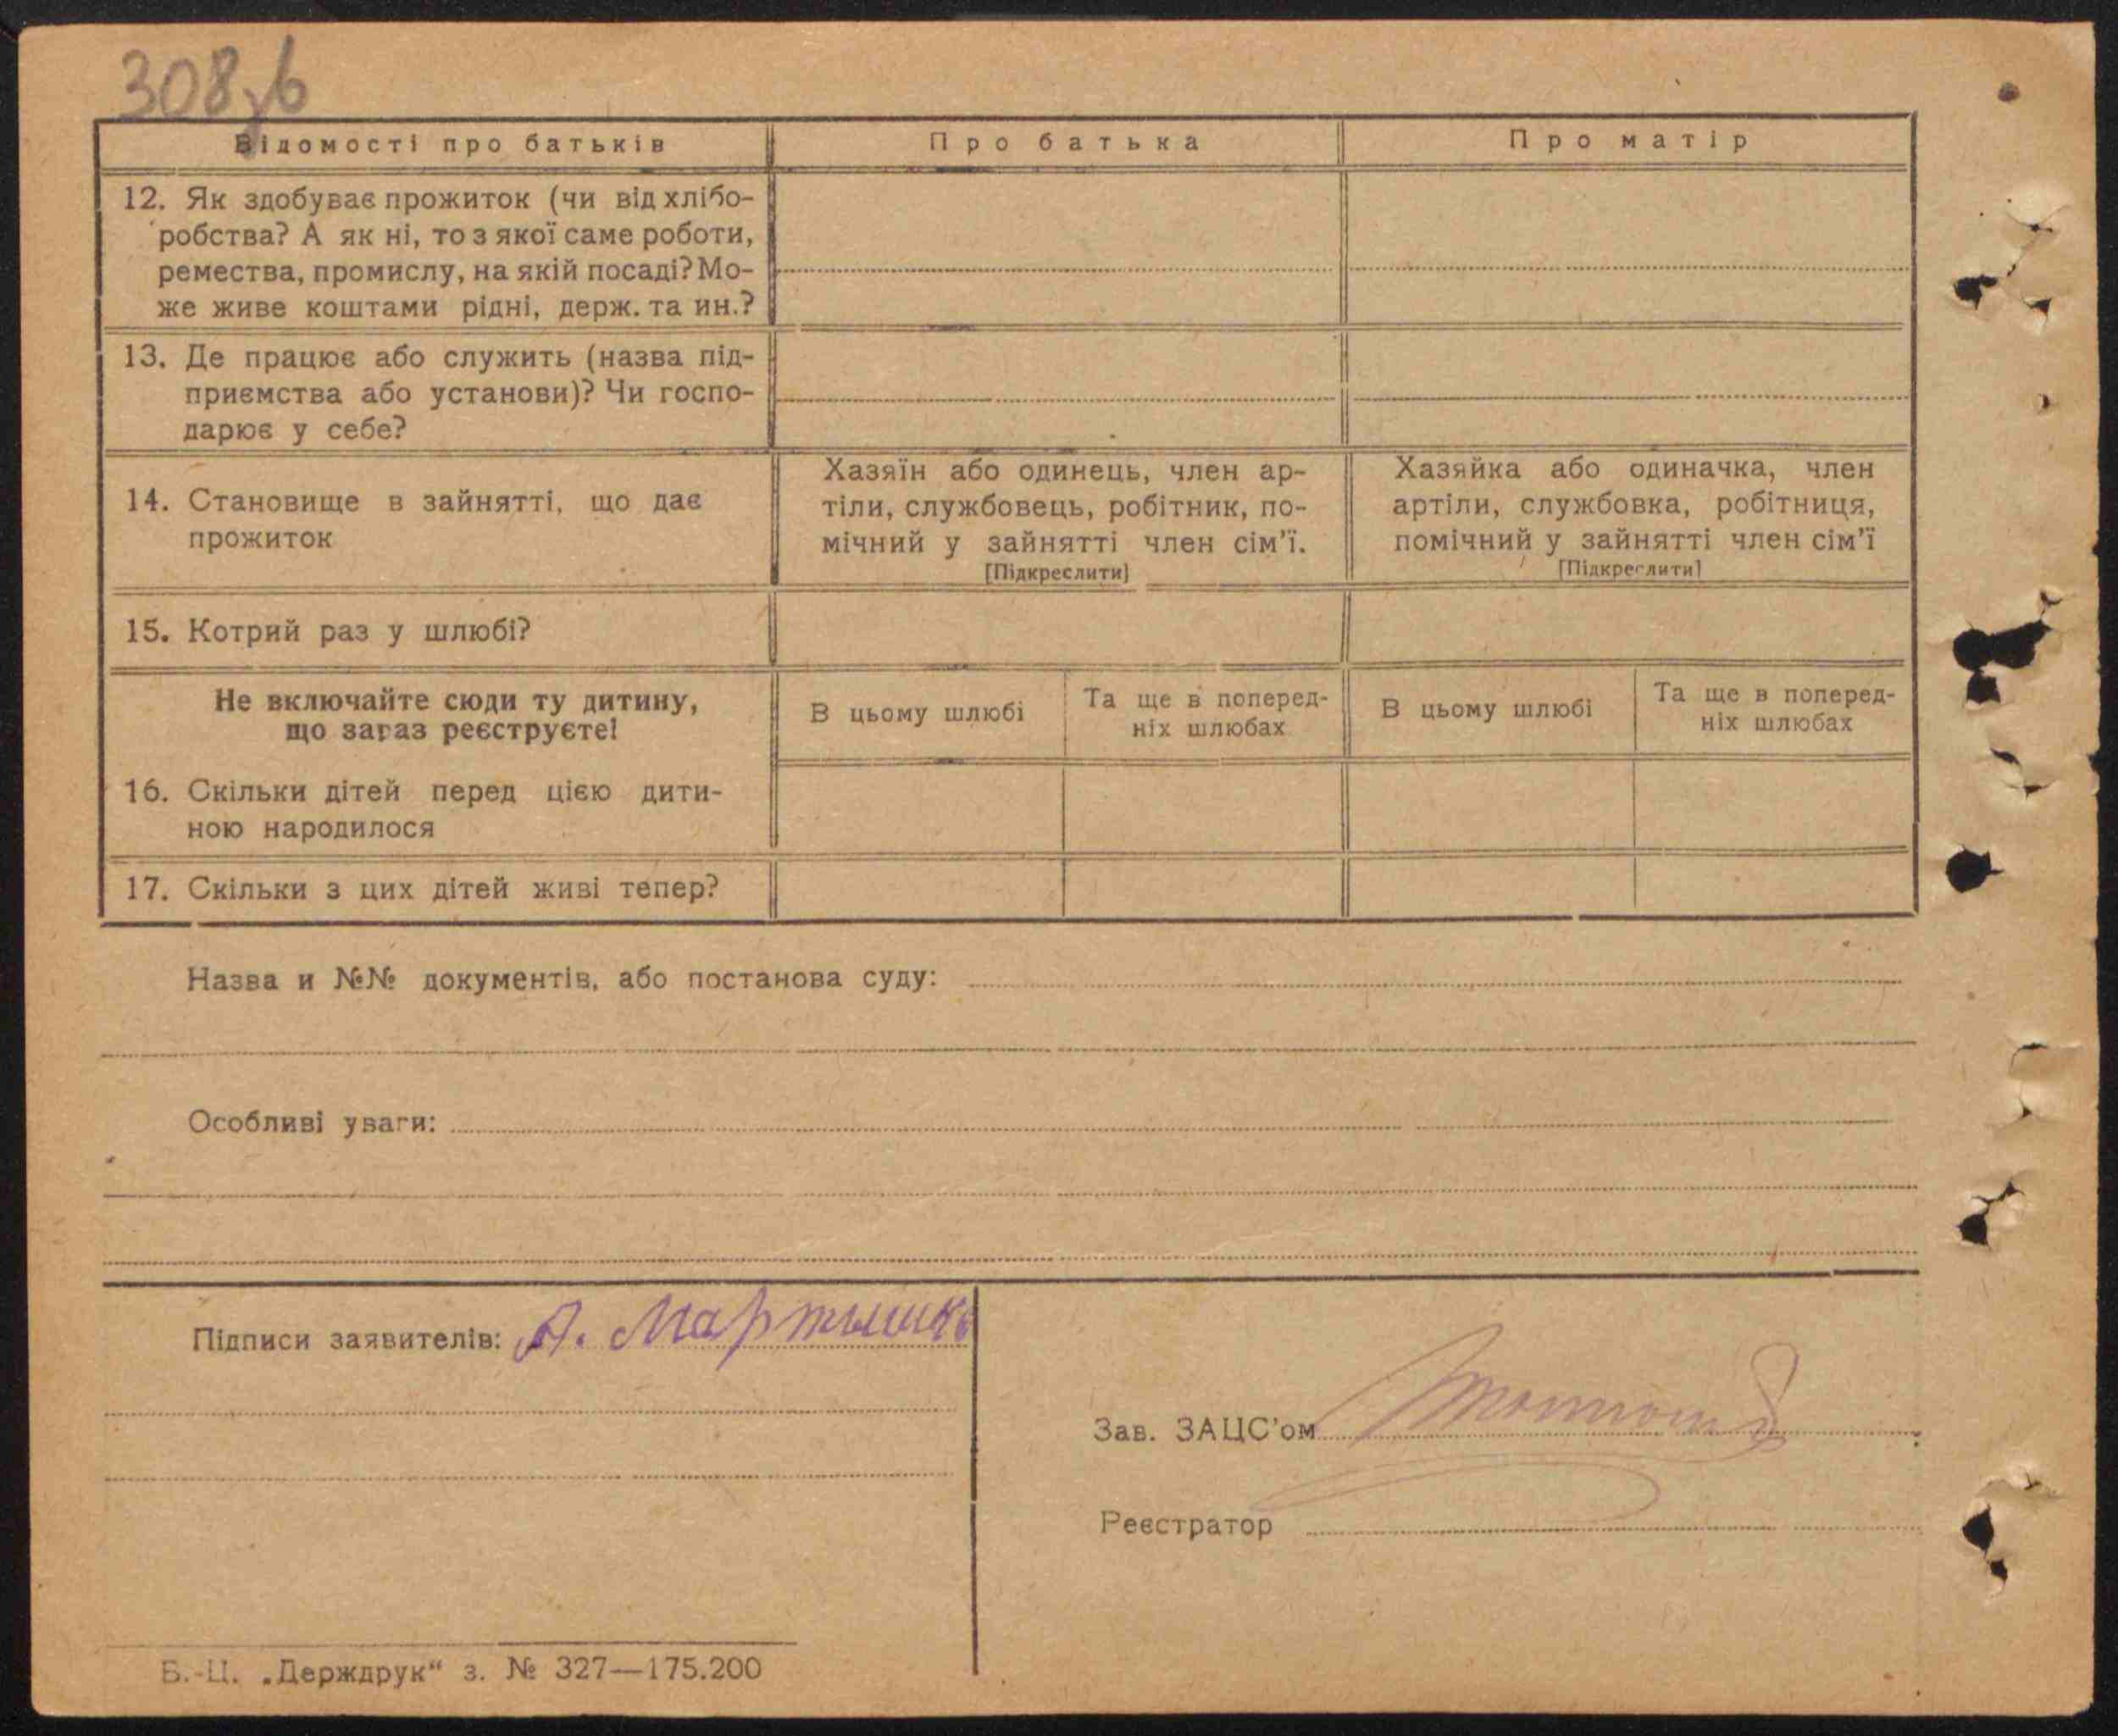 308зв
Відомості про батьків
Про батька
Про матір
12. Як здобуває прожиток (чи від хлібо-
робства? А як ні, то з якої саме роботи,
ремества, промислу, на якій посаді? Мо-
же живе коштами рідні, держ. та ин.?
13. Де працює або служить (назва під-
приємства або установи)? Чи госпо-
дарює у себе?
14. Становище в зайнятті, що дає
прожиток
Хазяїн або одинець, член ар-
тіли, службовець, робітник, по-
мічний у зайнятті член сім'ї.
[Підкреслити]
Хазяйка або одиначка, член
артіли, службовка, робітниця,
помічний у зайнятті член сім'ї
[Підкреслити]
15. Котрий раз у шлюбі?
Не включайте сюди ту дитину,
що зараз реєструєте!
В цьому шлюбі
Та ще в поперед-
ніх шлюбах
В цьому шлюбі
Та ще в поперед-
ніх шлюбах
16. Скільки дітей перед цією дити-
ною народилося
17. Скільки з цих дітей живі тепер?
Назва и №№ документів, або постанова суду:
Особливі уваги:
Підписи заявителів: А. Мартышко
Зав. ЗАЦС'ом
Реєстратор
Б.-Ц. „Держдрук“ з. № 327—175.200